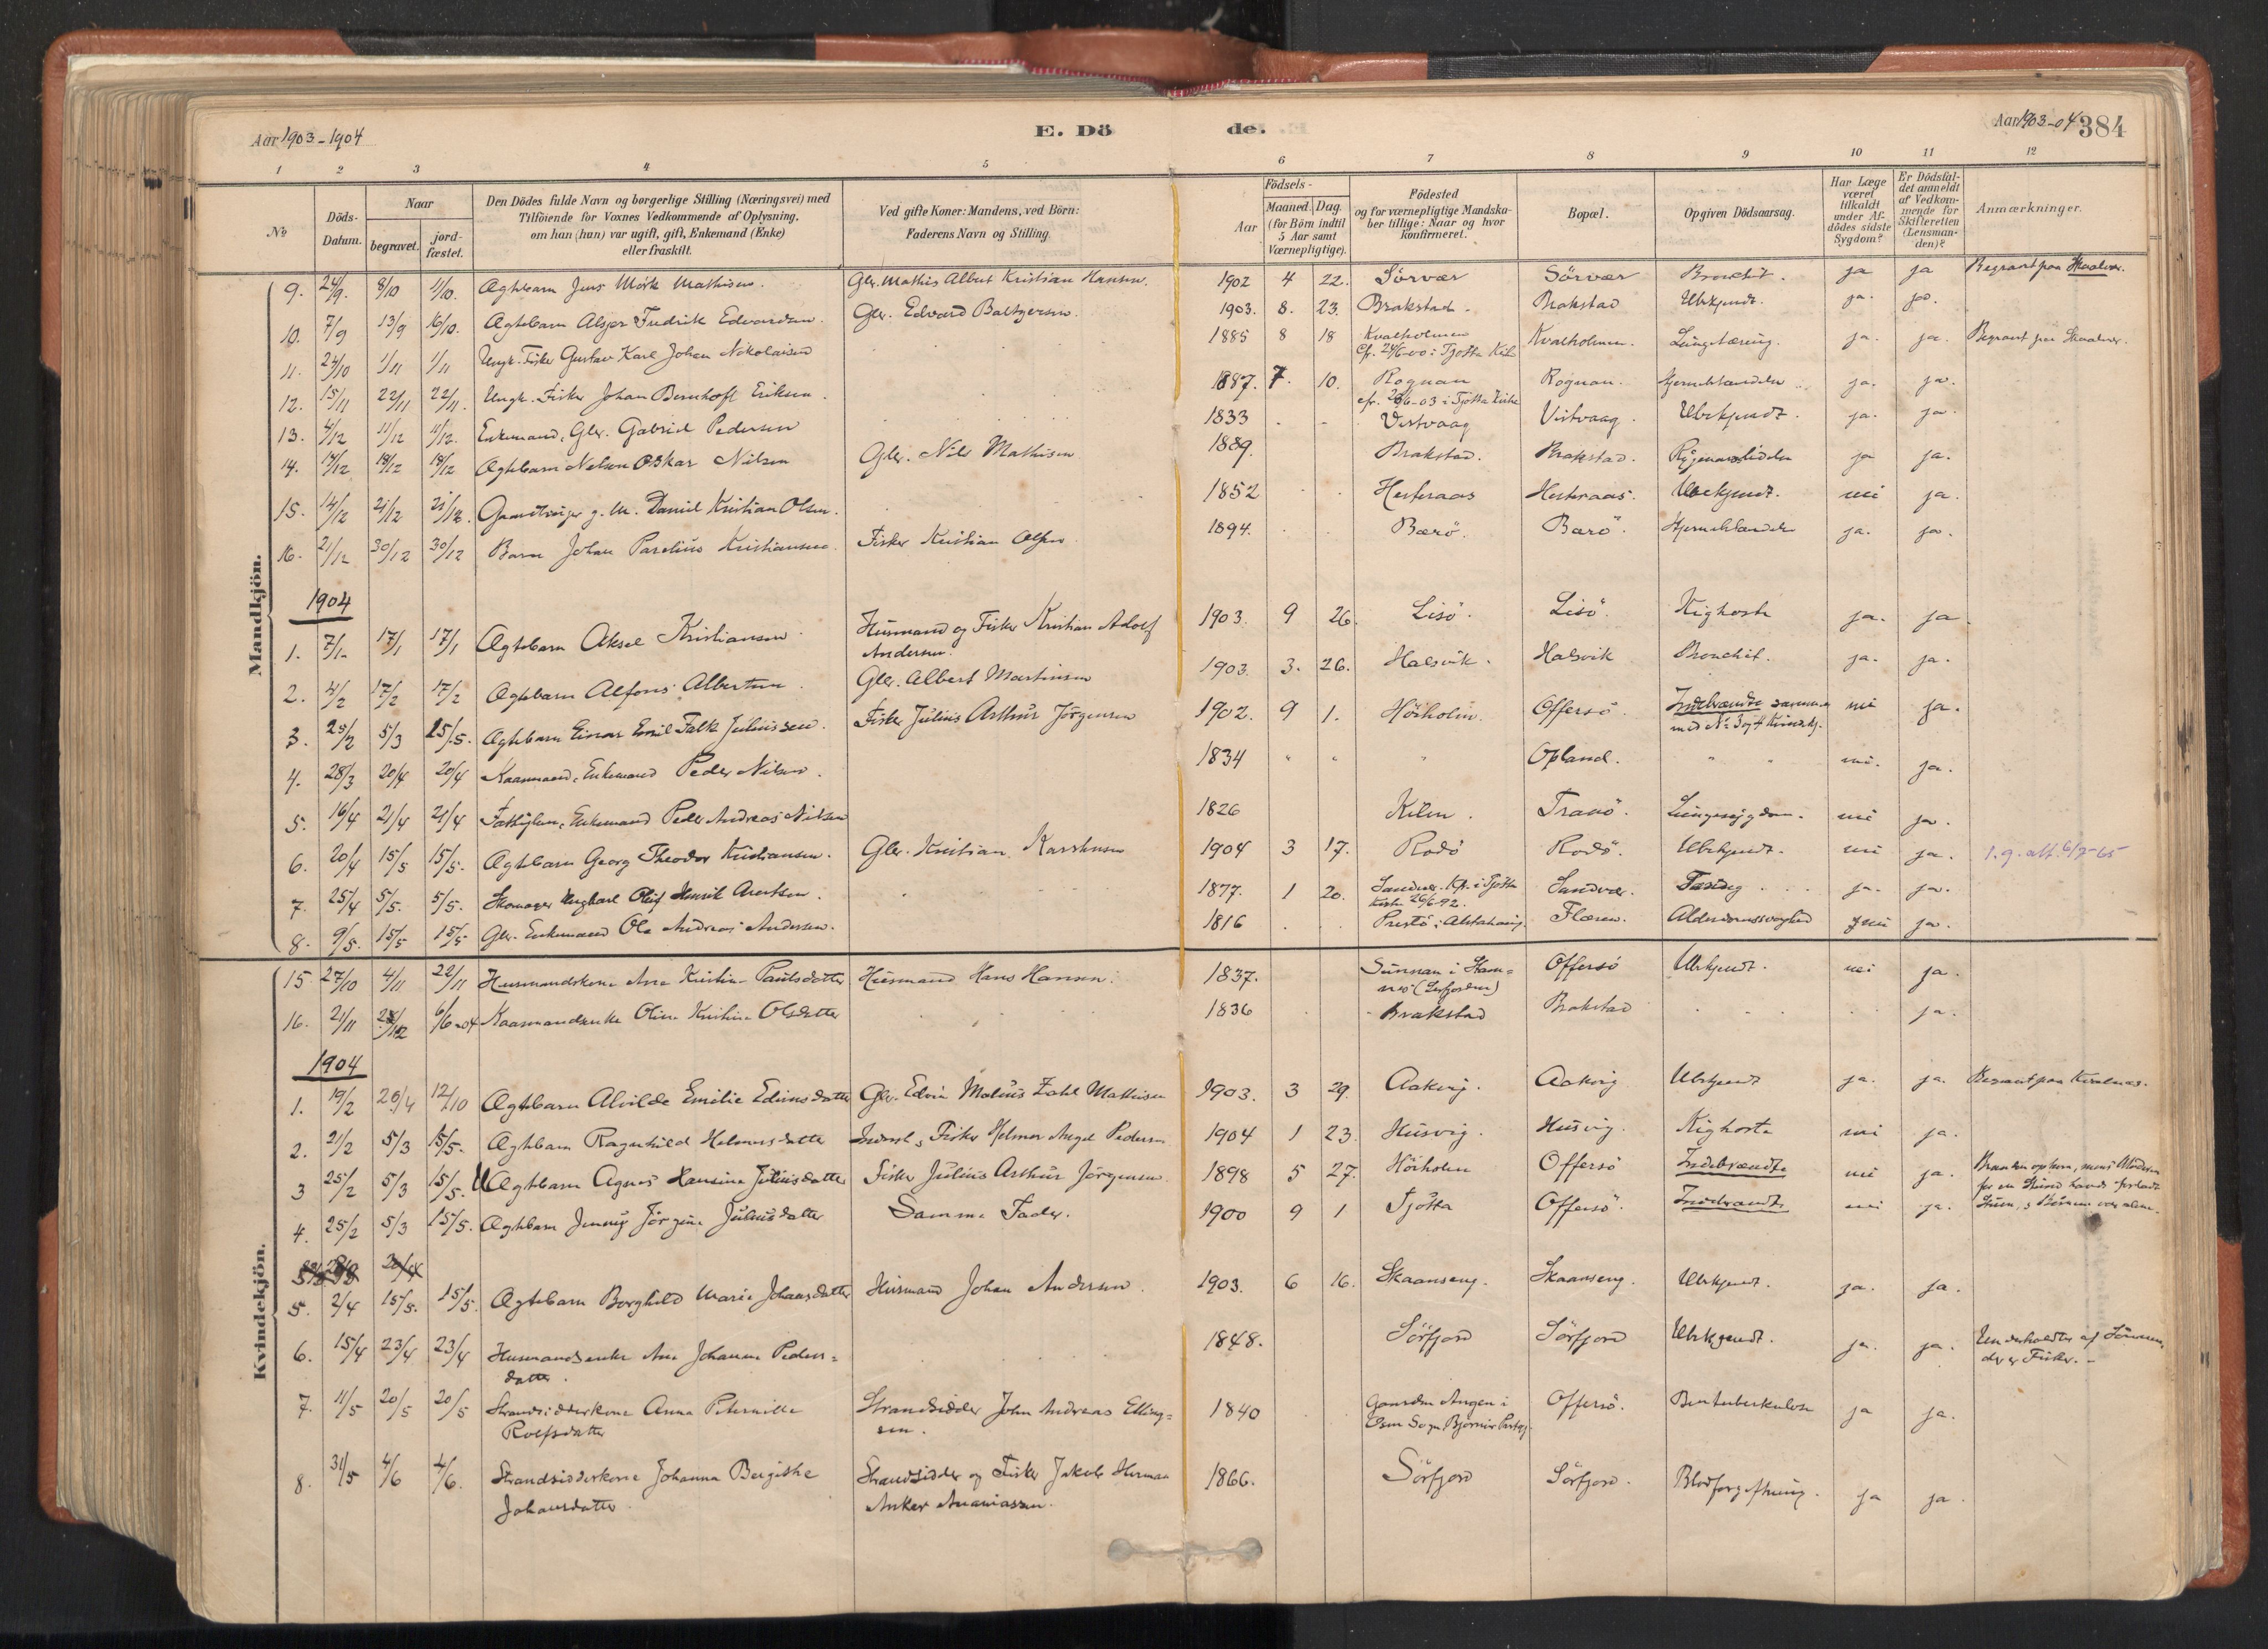 Aar 1903-1904
E. Dö de.
Aar 1903-04 384
1 2 3 4 5 6 7 8 9 10 11 12
No
Döds-Datum.
Naar
begravet. jord-fæstet.
Den Dödes fulde Navn og borgerlige Stilling (Næringsvei) med
Tilföiende for Voxnes Vedkommende af Oplysning,
om han (hun) var ugift, gift, Enkemand (Enke)
eller fraskilt.
Ved gifte Koner: Mandens, ved Börn:
Faderens Navn og Stilling
Födsels-
Aar Maaned. Dag.
(for Börn indtil
5 Aar samt
Værnepligtige).
Födested
og for værnepligtige Mandska-
ber tillige: Naar og hvor
konfirmeret.
Bopæl.
Opgiven Dödsaarsag.
Har Læge
været
tilkaldt
under Af-
dödes sidste
Sygdom?
Er Dödsfal-
det anmeldt
af Vedkom-
mende for
Skifteretten
(Lensman-
den)?
Anmærkninger.
Mandkjön.
9. 24/9. 8/10 11/10. Ægtebarn Jens Mörk Mathisen. Gbr. Mathis Albert Kristian Hansen. 1902 4 22. Sörvær Sörvær Bronchit. ja ja Begravet paa Skaalvær.
10. 7/9 13/9 16/10. Ægtebarn Fredrik Edvardsen. Gbr. Edvard Baltzersen. 1903. 8. 23. Brakstad. Brakstad Ubekjendt. ja. ja.
11. 24/10 1/11 1/11 Ungk. Fisker Gustav Karl Johan Nikolaisen 1885 8 18 Kvalholmen Kvalholmen. Lungetæring. ja. ja. Begravet paa Skaalvær.
Cfr. 24/6-00 i Tjøtta Kirke
12. 15/11 22/11 22/11. Ungk. Fisker Johan Bernhoft Eriksen. 1887. 7. 10. Rognan Rognan. Hjernebetændelse ja. ja.
cfr. 28/6-03 i Tjøtta Kirke
13. 4/12 11/12 11/12. Enkemand, Gbr. Gabriel Pedersen 1833 Vistvaag Vistvaag. Ubekjendt. ja. ja.
14. 14/12 18/12 18/12 Ægtebarn Nelson Oskar Nilsen Gbr. Nils Mathisen 1889. Brakstad. Brakstad. Rygmarvslidelse ja ja.
15. 14/12 21/12 21/12. Gaardbruger g. M. Daniel Kristian Olsen. 1852 Hesteraas Hesteraas. Ubekjendt. nei ja.
16. 21/12 30/12 30/12 Barn Johan Parelius Kristiansen Fisker Kristian Olsen 1894. Bærö. Bærö. Hjernebetændelse ja. ja.
1904
1. 7/1. 17/1 17/1 Ægtebarn Aksel Kristiansen Husmand og Fisker Kristian Adolf 1903. 9 26. Lisö. Lisö. Kighoste ja. ja.
Andersen.
2. 4/2 17/2 17/2 Ægtebarn Alfons Albertsen. Gbr. Albert Martinsen 1903. 3. 26. Halsvik. Halsvik Bronchit. ja. ja.
3. 25/2 5/3 15/5. Ægtebarn Einar Emil Falk Juliussen. Fisker Julius Arthur Jörgensen 1902. 9 1. Höiholm. Offersö. Indebrændte sammen nei ja.
med No 3 og 4 Kvindekj.
4. 28/3 20/4 20/4 Kaarmand, Enkemand Peder Nilsen. 1834 " " " Opland. " " nei. ja.
5. 16/4 21/4 21/4 Fattiglem, Enkemand Peder Andreas Nilsen 1826 Kilen. Tranö. Lungesygdom. nei ja.
6. 20/4 15/5 15/5. Ægtebarn Georg Theodor Kristiansen. Gbr. Kristian Karstensen 1904 3 17. Rodö Rodö. Ubekjendt. nei ja. 1. g. att. 6/7-65
7. 25/4 5/5. 5/5. Skomager Ungkarl Oluf Henrik Arentsen. 1877. 1 20. Sandvær. Kfr. i Tjøtta Sandvær. Tæring ja. ja.
Kirke 26/6-92.
8. 9/5. 15/5 15/5 Gbr. Enkemand Ole Andreas Andersen. 1816 Prestö i Alstahaug. Flæsen. Alderdomssvaghed nei ja.
Kvindekjön.
15. 27/10 4/11 22/11 Husmandskone Ane Kristine Paulsdatter Husmand Hans Hansen. 1837. Sunnan i Ham= Offersö Ubekjendt. nei ja.
nes (Leirfjorden)
16. 21/11 /12 6/6-04 Kaarmandsenke Oline Kristine Olsdatter 1836 Brakstad Brakstad ja.
1904
1. 19/2 26/4 12/10 Ægtebarn Alvilde Emilie Edvinsdatter Gbr. Edvin Molius Zahl Mathisen 1903. 3 29. Aakvig. Aakvig Ubekjendt ja. ja. Begravet paa Kvalnes.
2. 21/2 5/3 15/5. Ægtebarn Ragnhild Helmersdatter Inderst, Fisker Helmer Angel Pedersen 1904 1 23. Husvig. Husvig. Kighoste nei ja.
3 25/2 5/3 15/5. Ægtebarn Agnes Hansine Juliusdatter Fisker Julius Arthur Jörgensen 1898 5 27. Höiholm Offersö Indebrændte nei ja. Branden opkom, mens Moderen
for en Stund havde forladt
4. 25/2 5/3 15/5. Ægtebarn Jenny Jörgine Juliusdatter Samme Fader. 1900 9 1 Tjøtta Offersö. Indebrændte nei ja. Huset, & Börnene var alene.
5. 2/4 15/5. 15/5. Ægtebarn Borghild Marie Johansdatter Husmand Johan Andersen. 1903. 6 16. Skaanseng. Skaanseng. Ubekjendt. ja. ja.
6. 15/4 23/4 23/4 Husmandsenke Ane Johanna Peders= 1848. Sörfjord Sörfjord Ubekjendt. ja. ja. Underholdtes af Sönnen,
datter. der er Fisker.
7. 11/5 20/5 20/5 Strandsidderkone Anna Peternille Strandsidder John Andreas Elling= 1840 Gaarden Angen i Offersö. Bentuberkulose ja ja.
Rolfsdatter sen. Sogn Bjørnør Prstgj.
8. 31/5 4/6 4/6. Strandsidderkone Johanna Bergithe Strandsidder og Fisker Jakob Herman 1866. Sörfjord Sörfjord. Blodforgiftning. ja ja.
Johansdatter. Anker Ananiassen.